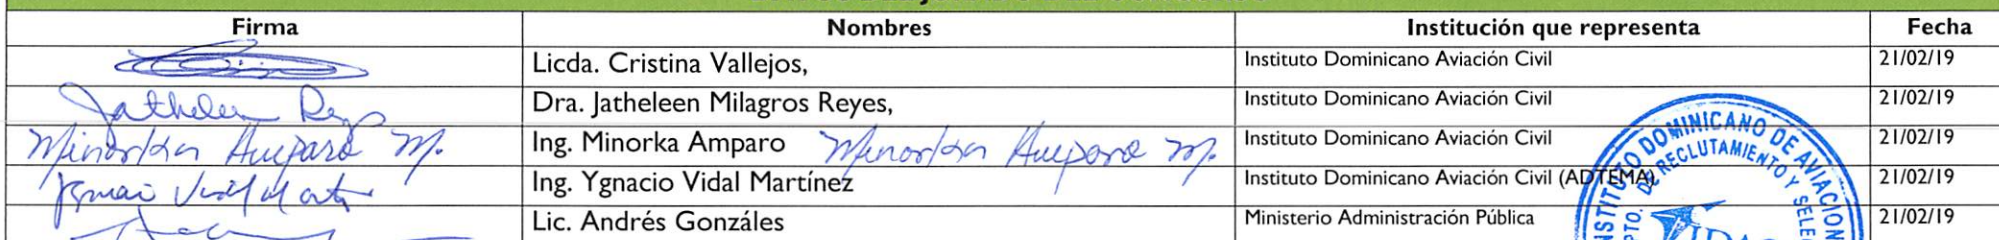 Firma Nombres Institución que representa Fecha
Licda. Cristina Vallejos, Instituto Dominicano Aviación Civil 21/02/19
Jatheleen Reyes Dra. Jatheleen Milagros Reyes, Instituto Dominicano Aviación Civil 21/02/19
Minorka Amparo M. Ing. Minorka Amparo Minorka Amparo M. Instituto Dominicano Aviación Civil 21/02/19
Ing. Ygnacio Vidal Martínez Instituto Dominicano Aviación Civil (ADTEMA) 21/02/19
Lic. Andrés Gonzáles Ministerio Administración Pública 21/02/19
INSTITUTO DOMINICANO DE AVIACION
DPTO. DE RECLUTAMIENTO Y SELE
IDAC